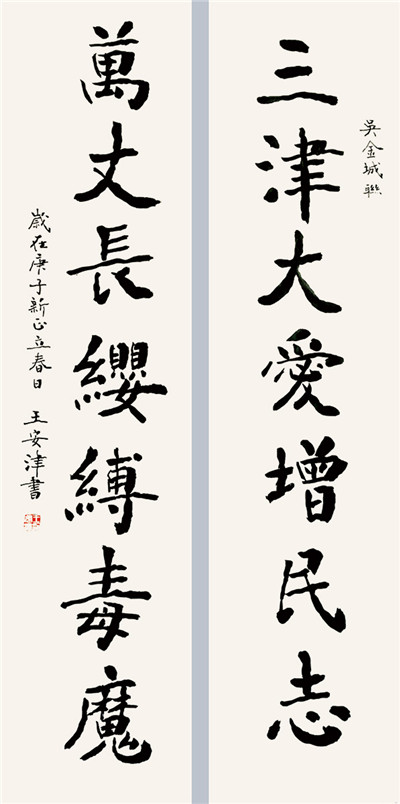 吳金城聯
三津大愛增民志
萬丈長纓縛毒魔
歲在庚子新正立春日 王安津書